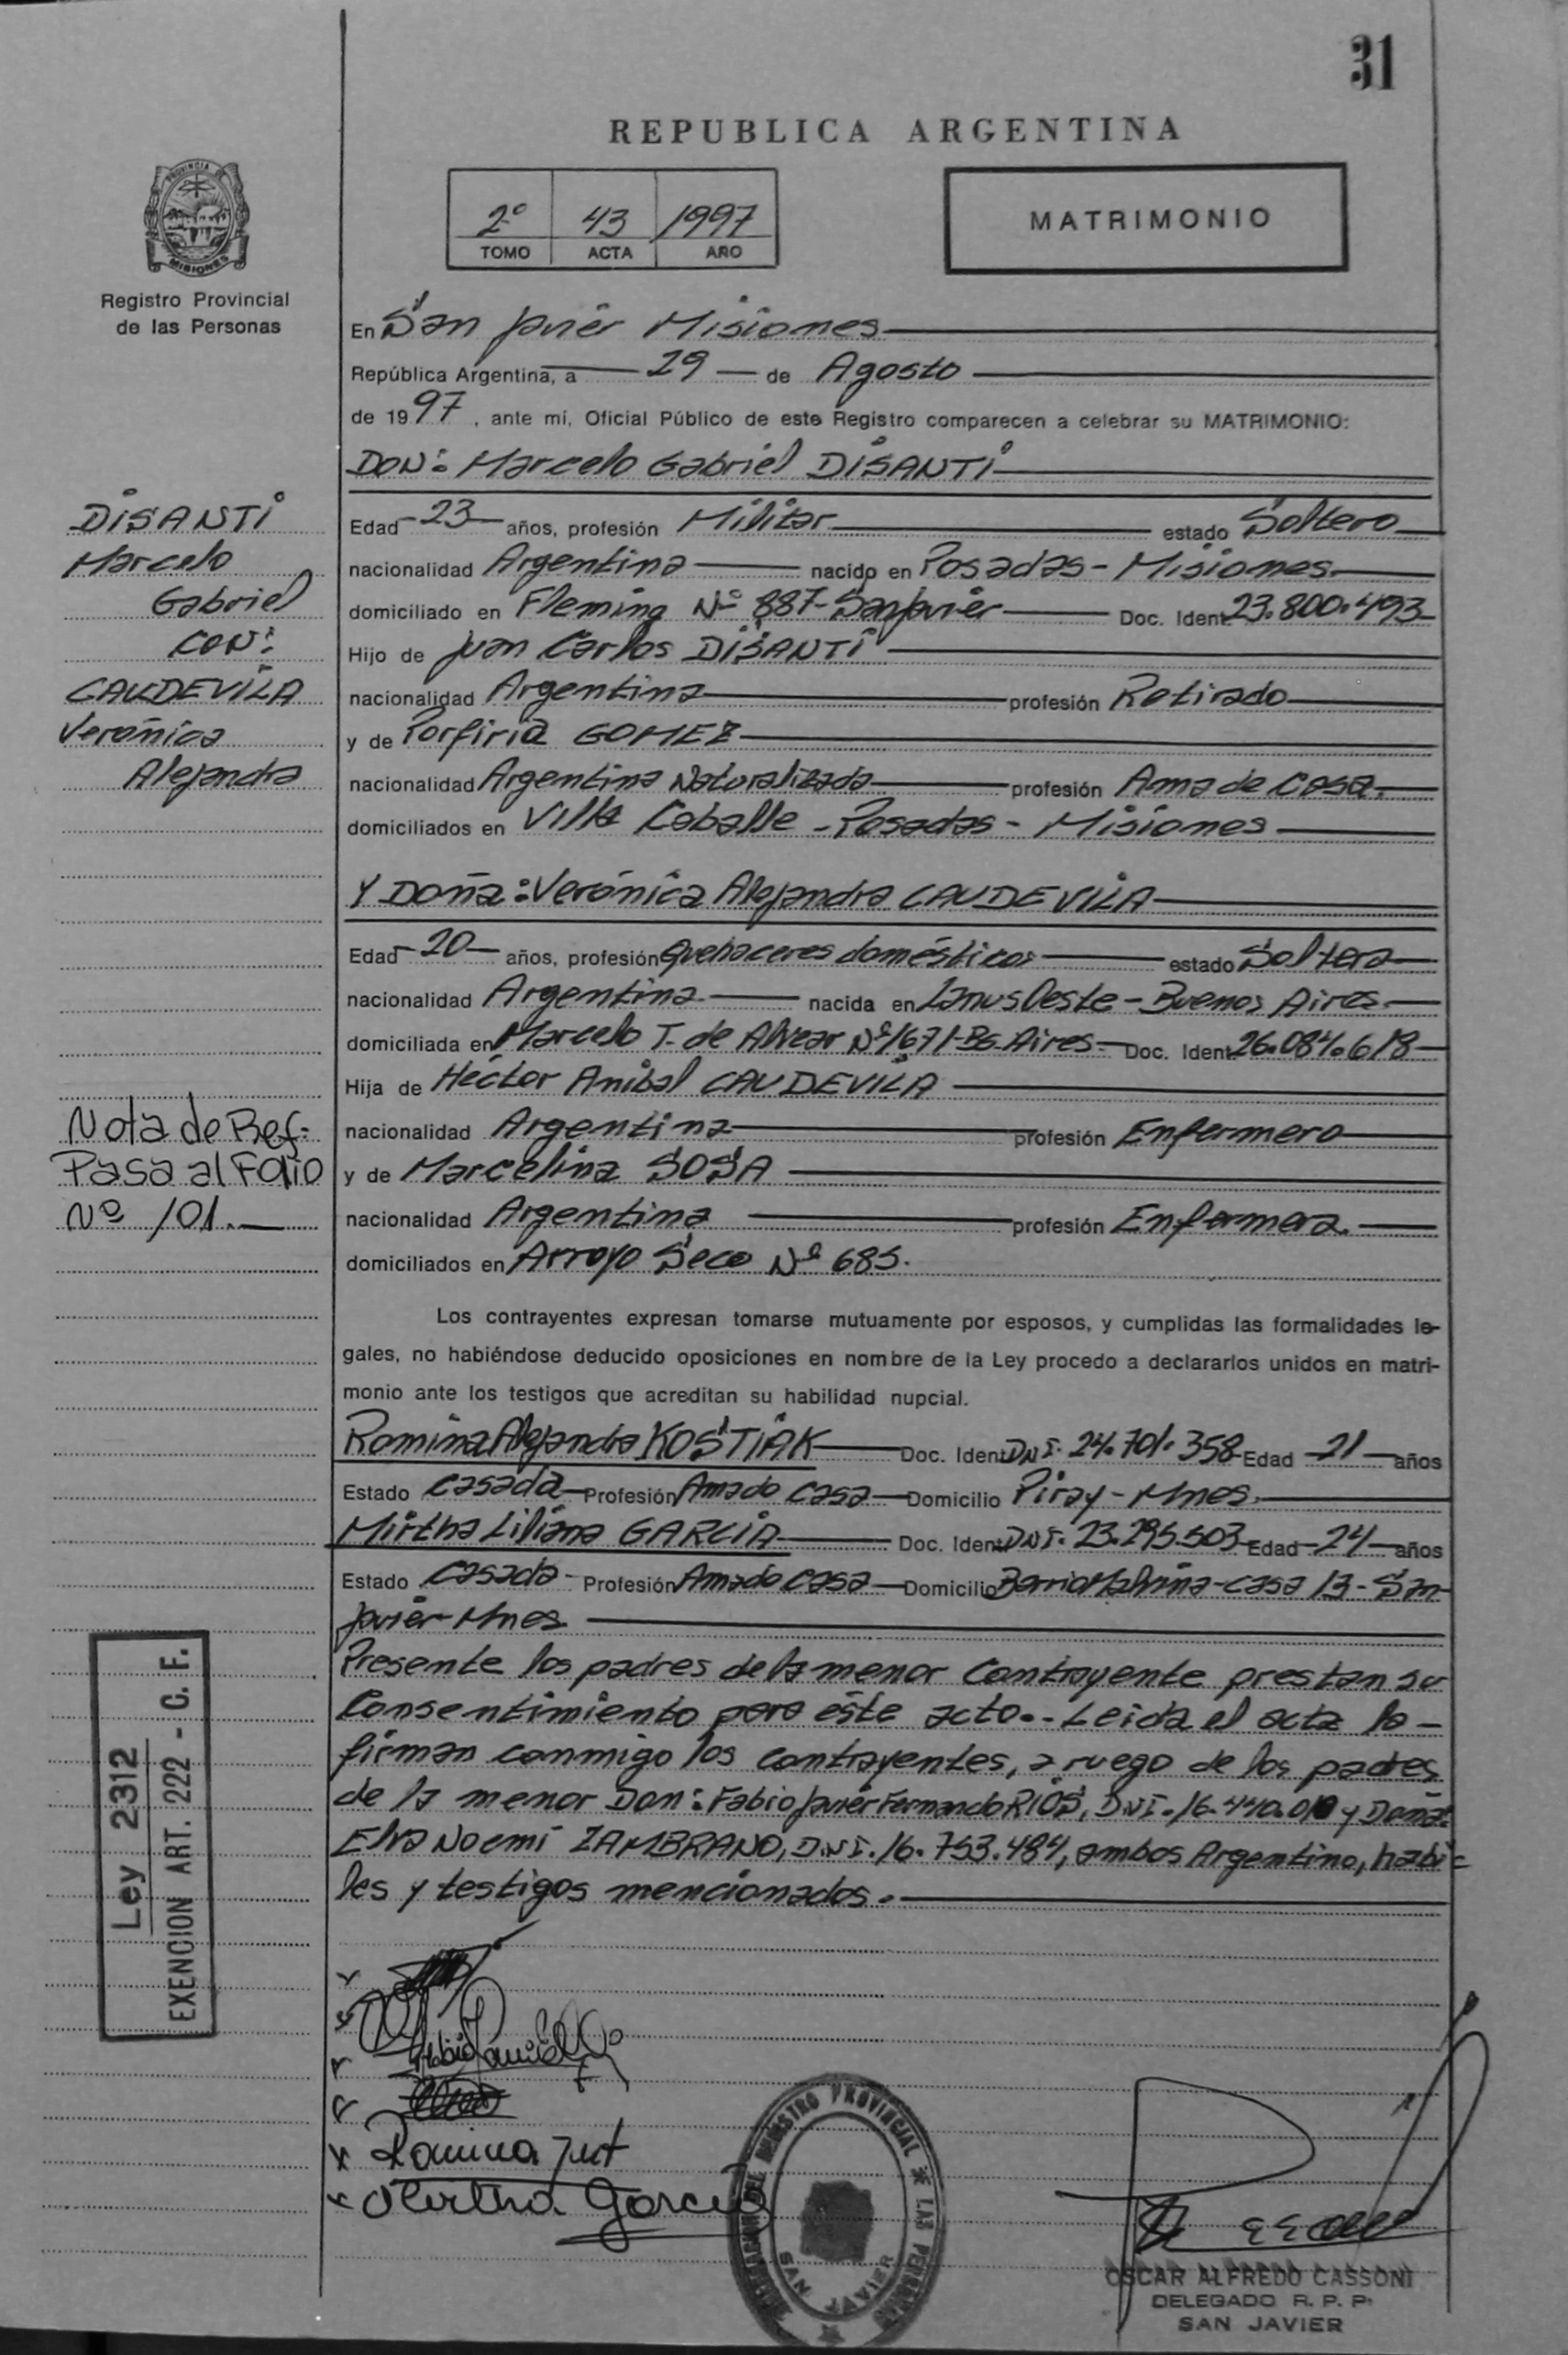 31
REPUBLICA ARGENTINA
2º 43 1997
TOMO ACTA AÑO
MATRIMONIO
PROVINCIA DE
MISIONES
Registro Provincial
de las Personas
En San Javier Misiones
República Argentina, a 29 de Agosto
de 1997, ante mí, Oficial Público de este Registro comparecen a celebrar su MATRIMONIO:
DON: Marcelo Gabriel DISANTI
Edad 23 años, profesión Militar estado Soltero
nacionalidad Argentina nacido en Posadas - Misiones
domiciliado en Fleming Nº 887 - San Javier Doc. Ident. 23.800.493
Hijo de Juan Carlos DISANTI
nacionalidad Argentina profesión Retirado
y de Porfiria GOMEZ
nacionalidad Argentina Naturalizada profesión Ama de Casa.
domiciliados en Villa Caballe - Posadas - Misiones
Y DOÑA: Verónica Alejandra CAUDEVILA
Edad 20 años, profesión Quehaceres domésticos estado Soltera
nacionalidad Argentina nacida en Lanus Oeste - Buenos Aires
domiciliada en Marcelo T. de Alvear Nº 1671 - Bs. Aires Doc. Ident. 26.084.618
Hija de Héctor Anibal CAUDEVILA
nacionalidad Argentina profesión Enfermero
y de Marcelina SOSA
nacionalidad Argentina profesión Enfermera.
domiciliados en Arroyo Seco Nº 685.
DISANTI
Marcelo
Gabriel
CON:
CAUDEVILA
Verónica
Alejandra
Nota de Ref:
Pasa al Folio
Nº 101.
Los contrayentes expresan tomarse mutuamente por esposos, y cumplidas las formalidades le-
gales, no habiéndose deducido oposiciones en nombre de la Ley procedo a declararlos unidos en matri-
monio ante los testigos que acreditan su habilidad nupcial.
Romina Alejandra KOSTIAK Doc. Ident. D.N.I. 24.701.358 Edad 21 años
Estado Casada Profesión Ama de Casa Domicilio Piray - Mnes.
Mirtha Liliana GARCIA Doc. Ident. D.N.I. 23.295.503 Edad 24 años
Estado Casada - Profesión Ama de Casa Domicilio Barrio Malvina - Casa 13 - San
Javier - Mnes.
Presente los padres de la menor Contrayente prestan su
Consentimiento para éste acto.- Leida el acta la
firman conmigo los contrayentes, a ruego de los padres
de la menor Don: Fabio Javier Fernando RIOS, D.N.I. 16.440.010 y Doña:
Elva Noemí ZAMBRANO, D.N.I. 16.753.484, ambos Argentino, habi-
les y testigos mencionados.
Ley 2312
EXENCION ART. 222 - C. F.
Romina
Mirtha Garcia
REGISTRO PROVINCIAL DE LAS PERSONAS
SAN JAVIER
OSCAR ALFREDO CASSONI
DELEGADO R. P. P.
SAN JAVIER